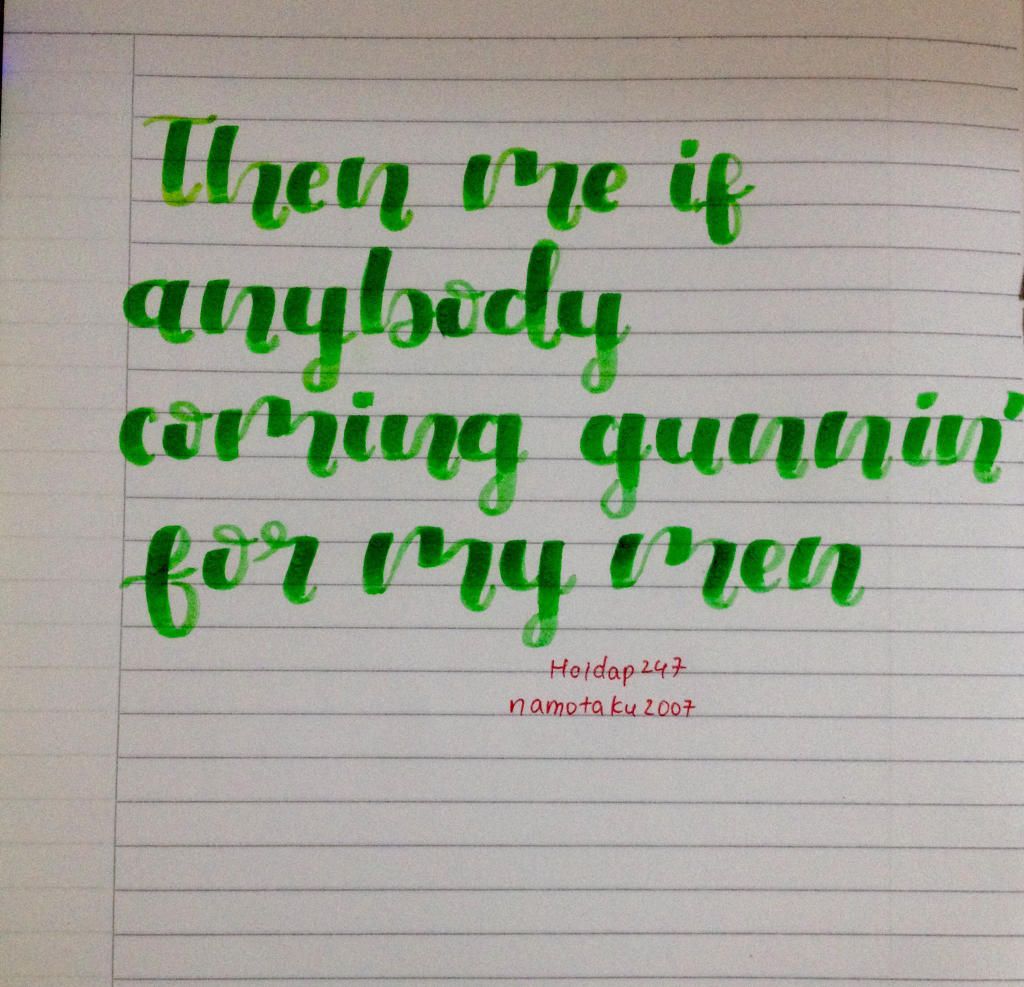 Then me if
anybody
coming gunnin'
for my men
Hoidap247
namotaku2007